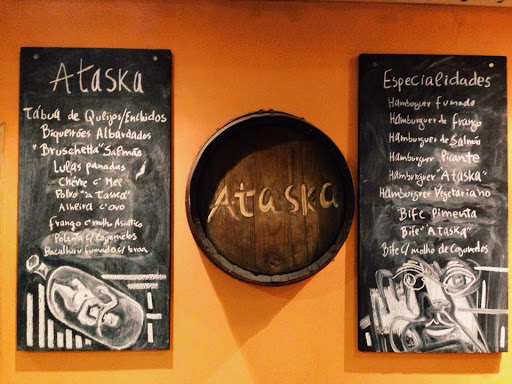 Ataska
Tábua de Queijos/Enchidos
Biqueirões Albardados
"Bruschetta" Salmão
Lulas panadas
Chévre c'Mel
Polvo "a Taska"
Alheira c'ovo
frango c'molho Asiático
Polenta c/Cogumelos
Bacalhau fumado c/broa
Ataska
Especialidades
Hamburguer fumado
Hamburguer de frango
Hamburguer de Salmão
Hamburguer Picante
Hamburguer "Ataska"
Hamburguer Vegetariano
Bife Pimenta
Bife "Ataska"
Bife c/molho de Cogumelos